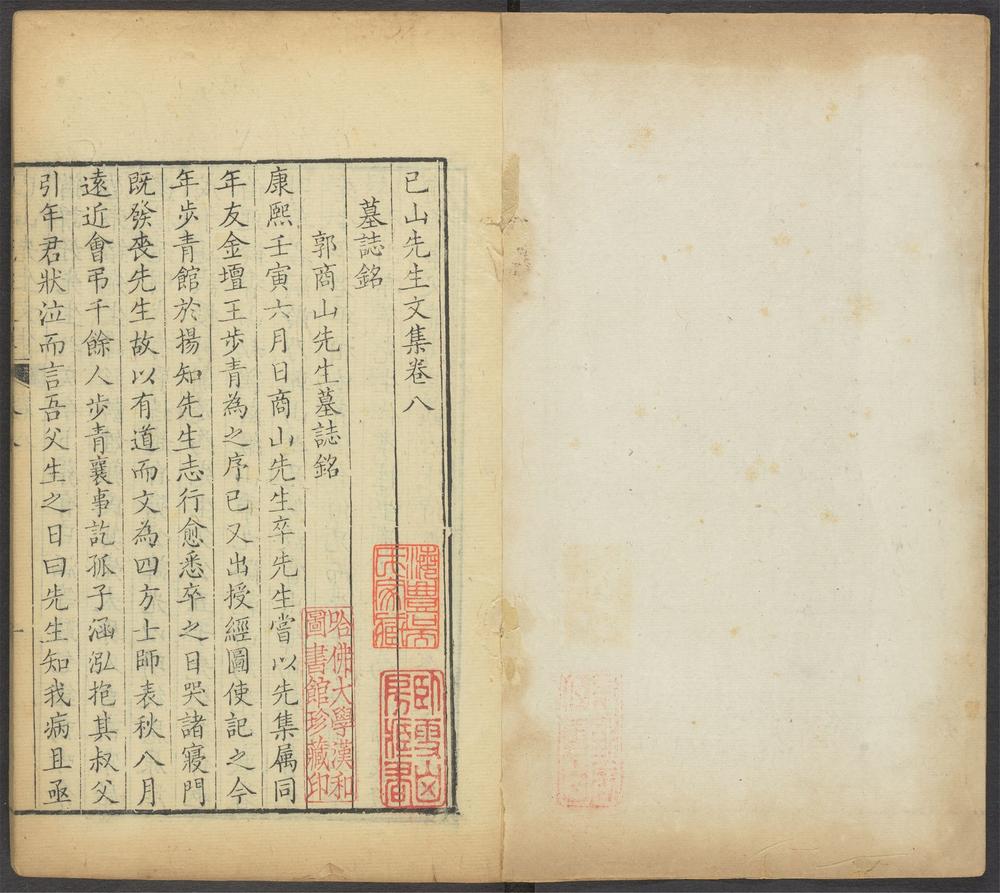 已山先生文集卷八
墓誌銘
郭商山先生墓誌銘
康熙壬寅六月日商山先生卒先生嘗以先集属同
年友金壇王步青為之序已又出授經圖使記之今
年步青館於揚知先生志行愈悉卒之日哭諸寢門
既發喪先生故以有道而文為四方士師表秋八月
遠近會弔千餘人步青襄事訖孤子涵泓抱其叔父
引年君狀泣而言吾父生之日曰先生知我病且亟
哈佛大學漢和
圖書館珍藏印